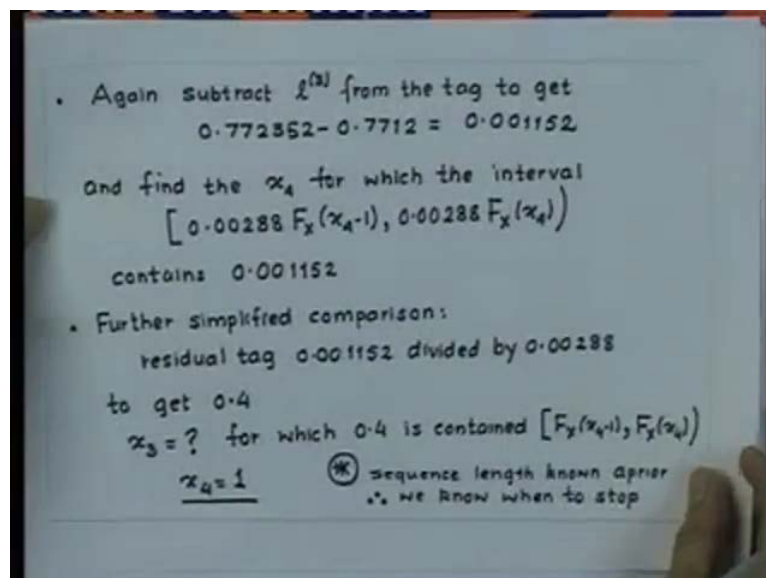 • Again subtract l^(3) from the tag to get
0.772352 - 0.7712 = 0.001152
and find the x₄ for which the interval
[0.00288 F_X(x₄-1), 0.00288 F_X(x₄))
contains 0.001152
• Further simplified comparison:
residual tag 0.001152 divided by 0.00288
to get 0.4
x₃ = ? for which 0.4 is contained [F_X(x₄-1), F_X(x₄))
x₄ = 1 (*) sequence length known aprior
∴ we know when to stop